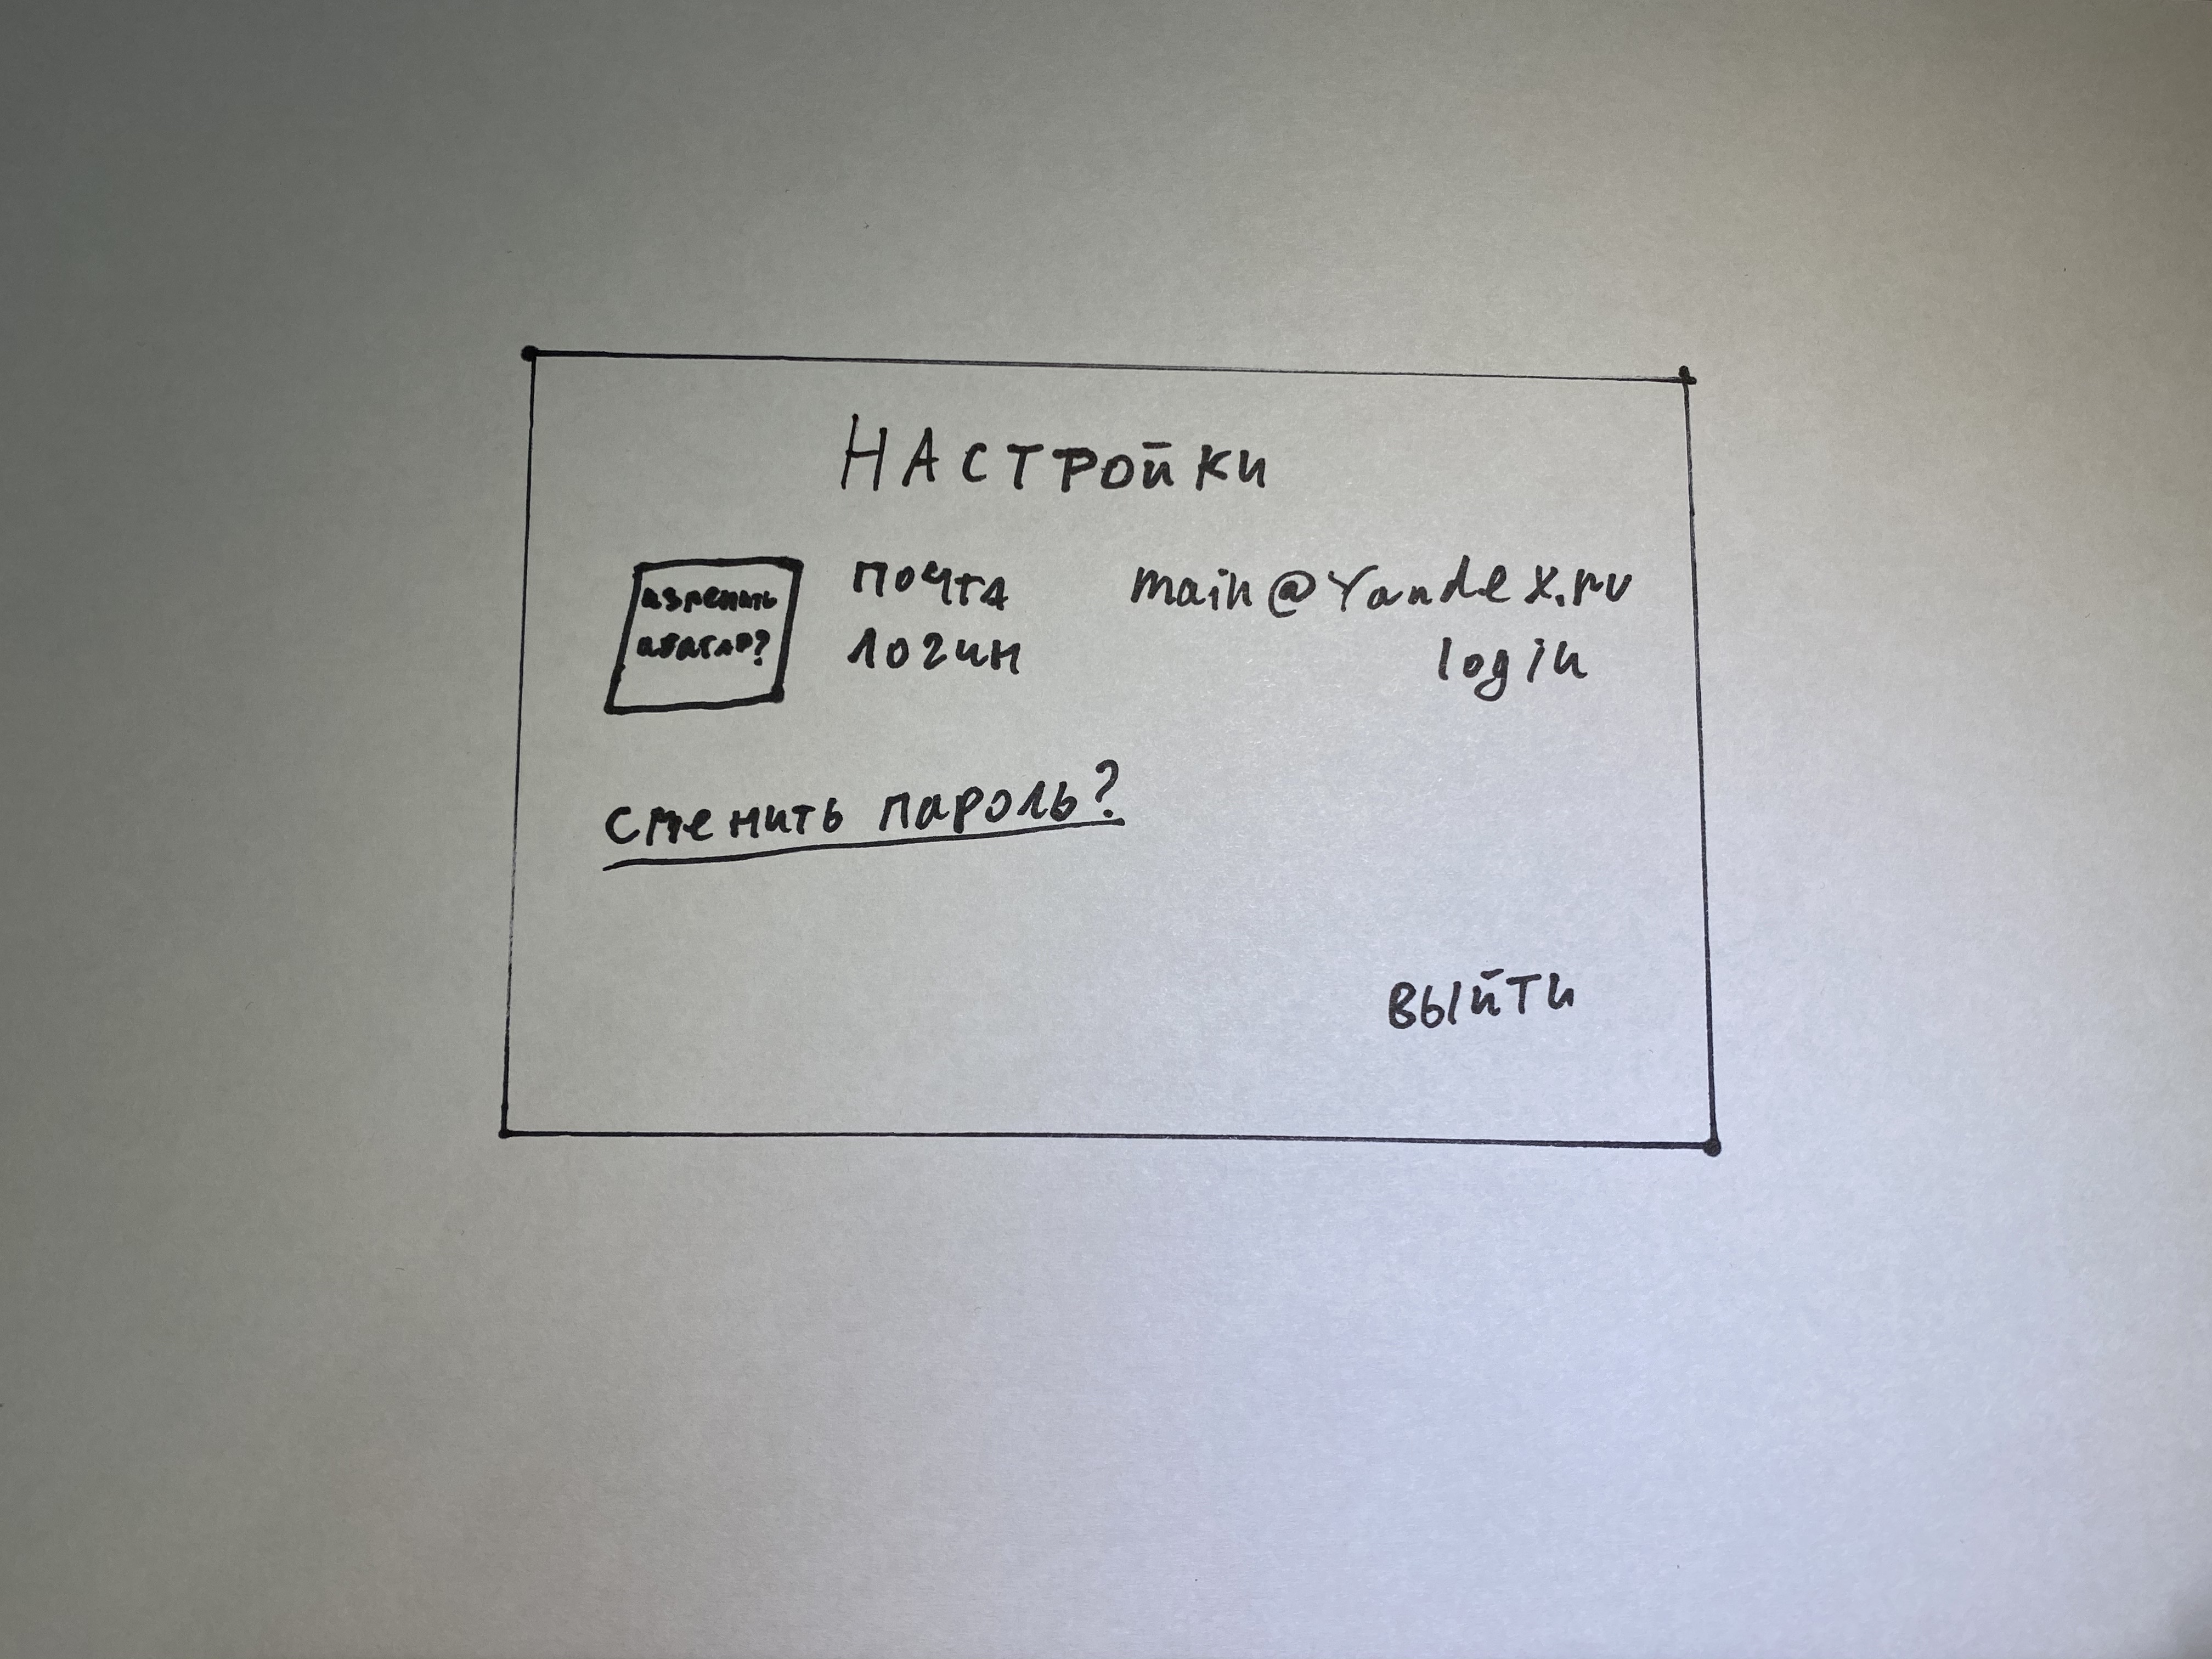 НАСТРОЙКИ
изменить
аватар?
почта main@Yandex.ru
логин login
сменить пароль?
выйти